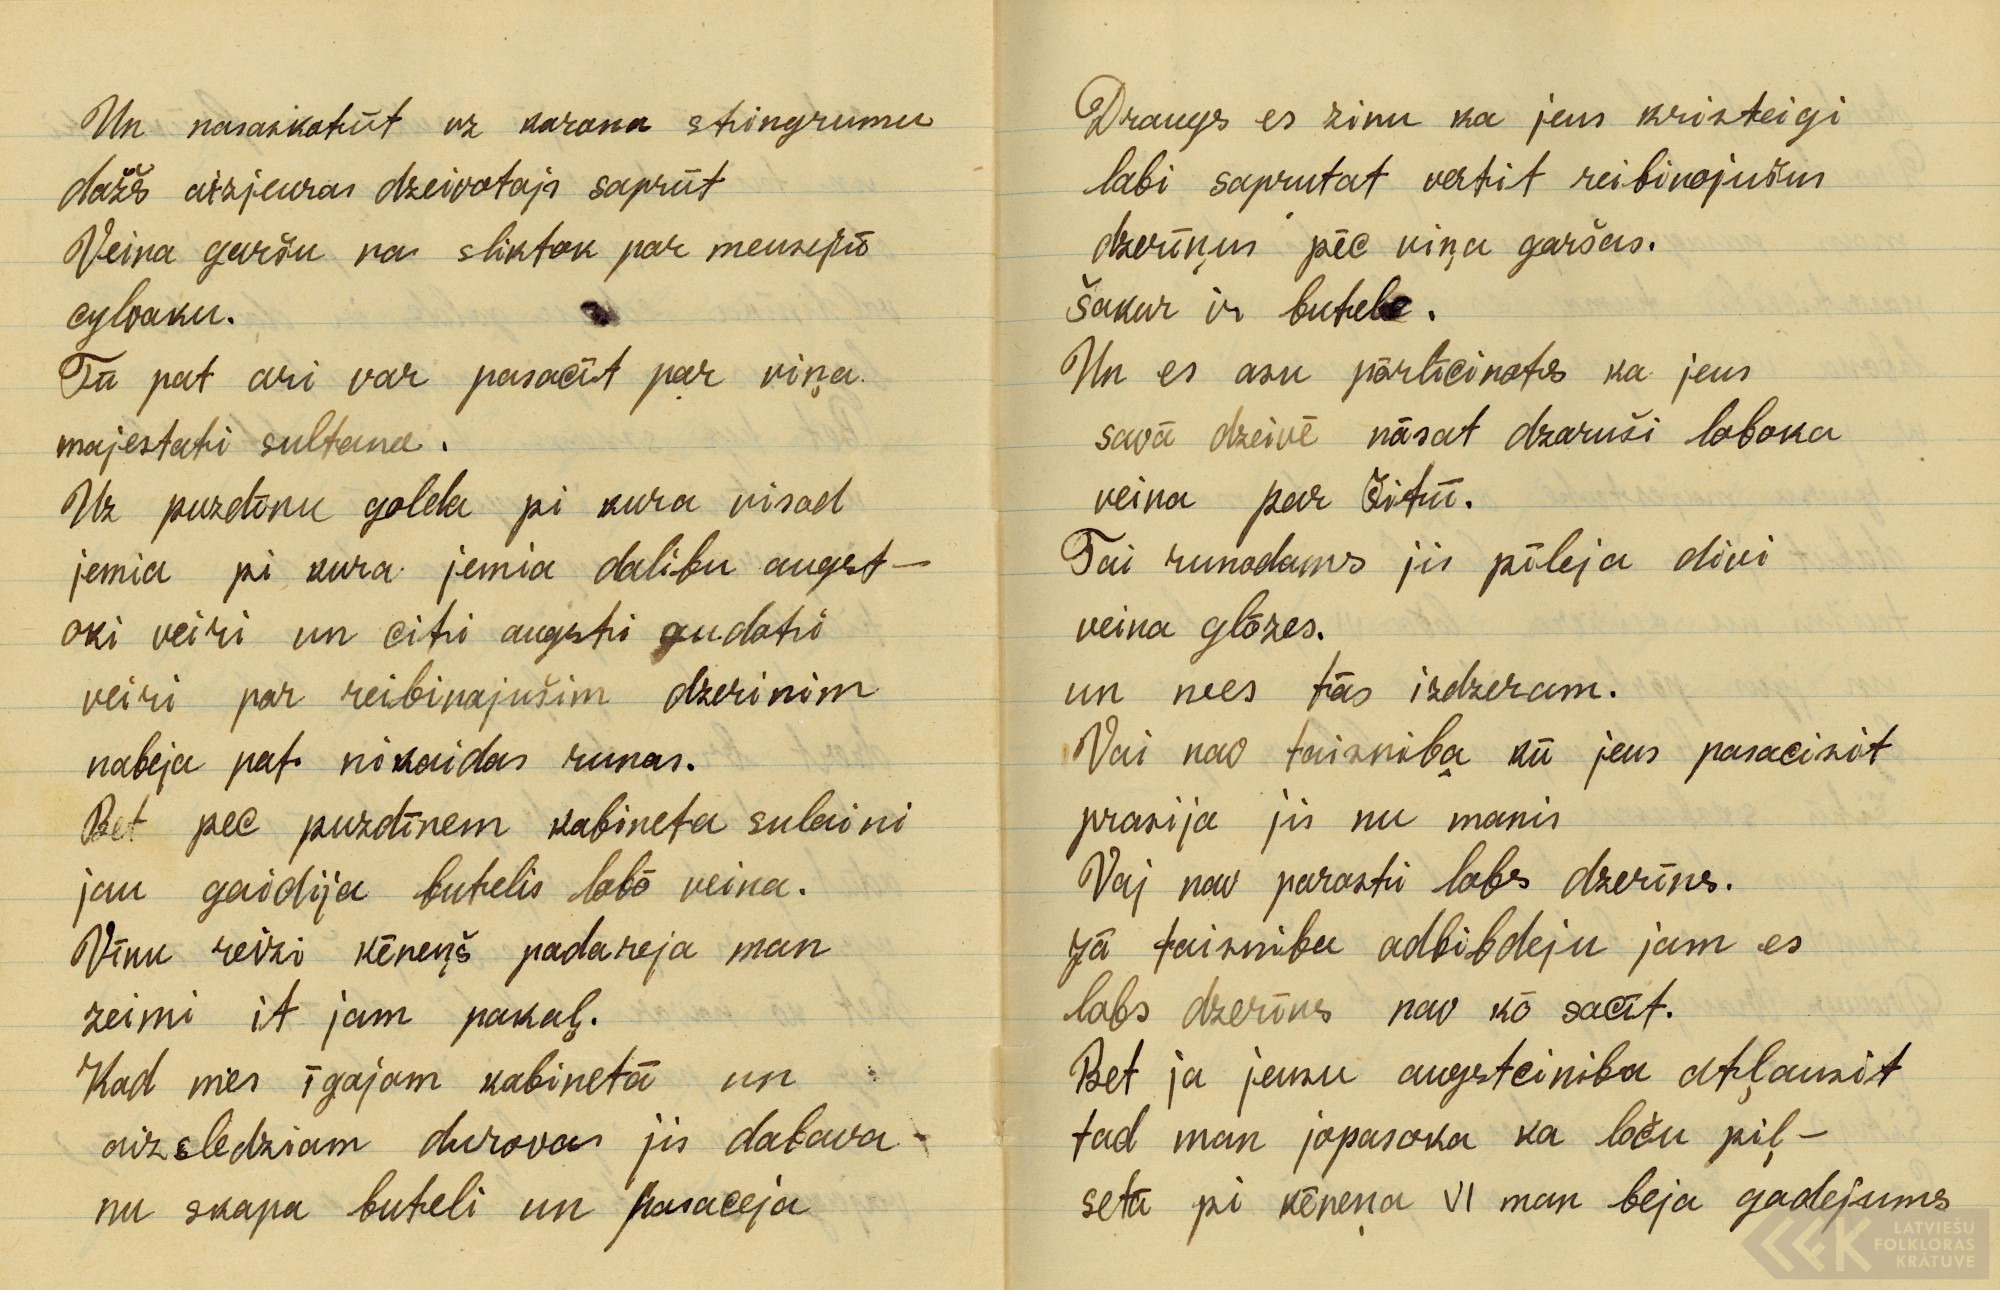 Un nasaskotūt uz karona stingrumu
dažs aizjeuras dzeivotajs saprūt
Veina garšu na sliktok par meusejū
cylvaku.
Tū pat ari var pasacīt par viņa
majestati sultana.
Uz puzdīnu golda pi kura visod
jemia pi kura jemia dalibu augst-
oki veiri un citi augsti gudoti
veiri par reibinajušim dzerinim
nabeja pat nikaidas runas.
Bet pec puzdīnem kabineta sulaini
jau gaidija butelis lobō veina.
Vīnu reizi kēneņš padareja man
zeimi it jam pakaļ.
Kad mes īgajam kabinetā un
aizsledziam durovas jis dabava
nu skapa buteli un pasaceja
Draugs es zinu ka jeus kristeigi
labi saprutat vertit reibinojušus
dzerīņus pēc viņa garšas.
Šakur ir butele.
Un es asu pōrlīcinots ka jeus
savā dzeivē nāsat dzaruši loboka
veina par šitū.
Tai runodams jis pīleja divi
veina glōzes.
un mes tās izdzeram.
Vai nav taisniba kū jeus pasacisit
prasija jis nu manis
Vaj nav parosti lobs dzerīns.
Jā taisniba adbibdeju jam es
lobs dzerīns nav kō sacīt.
Bet ja jeusu augstciniba atļausit
tad man jopasoka ka loču piļ-
setā pi kēneņa VI man beja gadejums
LATVIEŠU
FOLKLORAS
KRĀTUVE